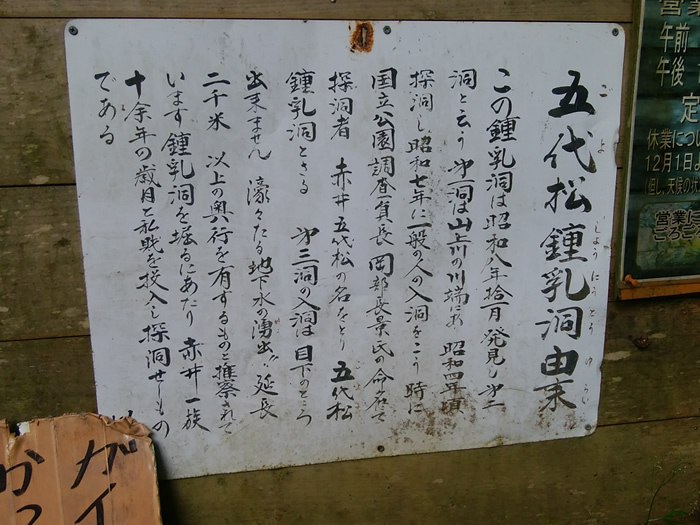 五代松鍾乳洞由来
ごよ
しようにうとうのらい
この鍾乳洞は昭和八年拾一月 発見し 第二
洞と云う 第一洞は山上川の川端にあり 昭和四年頃
探洞し 昭和七年に一般の人の入洞をこう 時に
国立公園調査一員長 岡部長景氏の命名にて
探洞者 赤井五代松の名をとり 五代松
鍾乳洞とさる 第三洞の入洞は 目下のところ
出来ません 濠々たる地下水の湧出が 延長
二千米 以上の奥行を有するものと推察されて
います 鍾乳洞を堀るにあたり 赤井一族
十余年の歳月と私財を投入し 探洞せしもの
である
営業
午前
午後
定
休業につい
12月1日よ
但し、天候の
営業
ごろごろ
ガイ
かっ